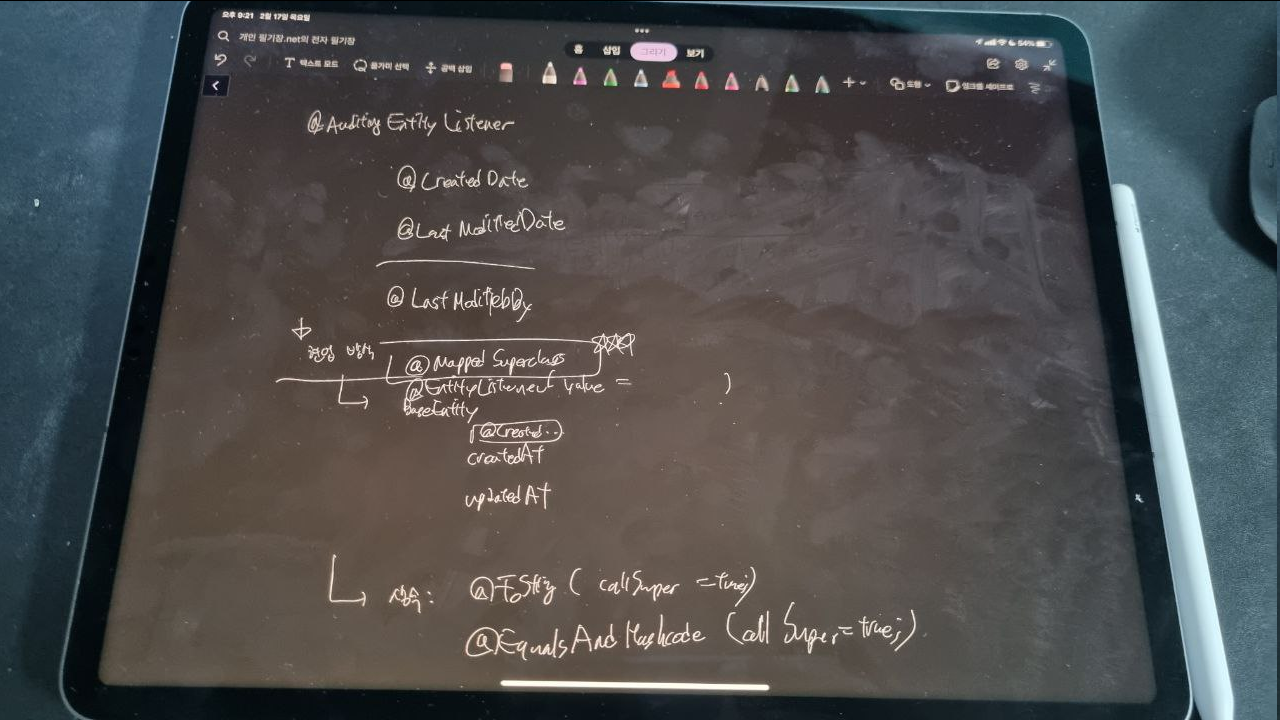 오후 9:21 2월 17일 목요일
54%
개인 필기장.net의 전자 필기장
홈 삽입 그리기 보기
텍스트 모드 올가미 선택 공백 삽입 도형 잉크를 셰이프로
@Auditing Entity Listener
@CreatedDate
@Last ModifiedDate
@LastModifiedBy
현업 방식
@Mapped Superclass
@EntityListener( value = )
BaseEntity
@Created..
createdAt
updatedAt
상속: @ToString ( callSuper = true;)
@EqualsAndHashcode (call Super = true;)